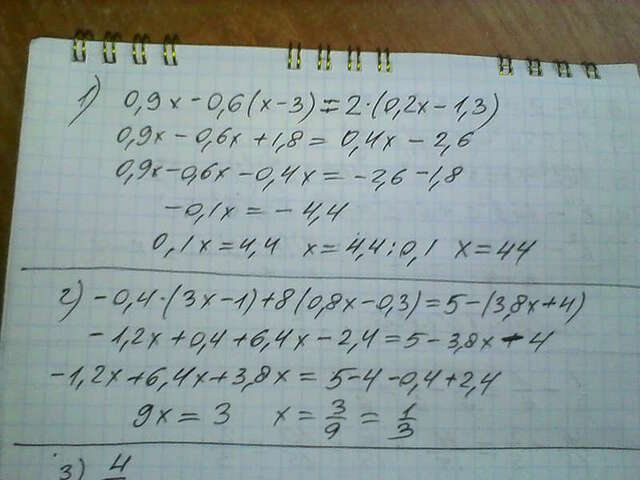 1) 0,9x - 0,6(x-3) = 2·(0,2x-1,3)
0,9x - 0,6x + 1,8 = 0,4x - 2,6
0,9x - 0,6x - 0,4x = -2,6 - 1,8
-0,1x = -4,4
0,1x = 4,4 x = 4,4:0,1 x = 44
2) -0,4·(3x-1)+8(0,8x-0,3) = 5-(3,8x+4)
-1,2x+0,4+6,4x-2,4 = 5-3,8x-4
-1,2x+6,4x+3,8x = 5-4-0,4+2,4
9x = 3 x = 3/9 = 1/3
3) 4